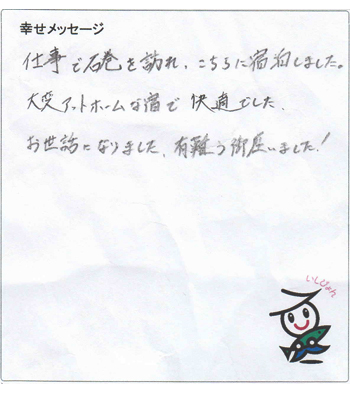 幸せメッセージ
仕事で石巻を訪れ、こちらに宿泊しました。
大変アットホームな宿で快適でした。
お世話になりました。有難う御座いました!
いしぴょん